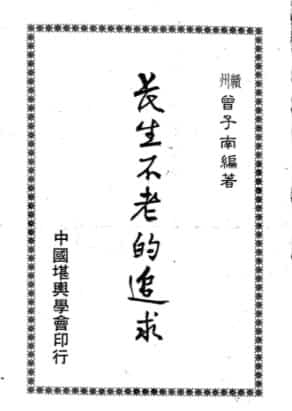 贛州 曾子南編著
長生不老的追求
中國堪輿學會印行